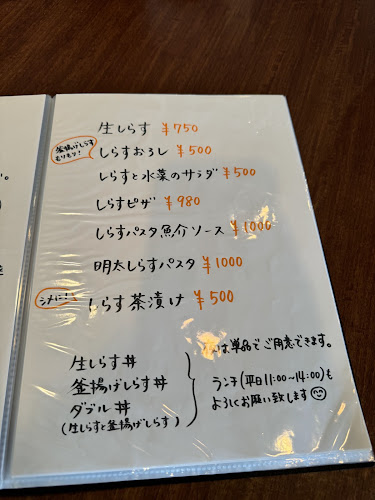 生しらす ¥750
釜揚げしらす
もりもり!
しらすおろし ¥500
しらすと水菜のサラダ ¥500
しらすピザ ¥980
しらすパスタ魚介ソース ¥1000
明太しらすパスタ ¥1000
シメに!
しらす茶漬け ¥500
生しらす丼
釜揚げしらす丼
ダブル丼
(生しらすと釜揚げしらす)
は単品でご用意できます。
ランチ(平日11:00~14:00)も
よろしくお願い致します